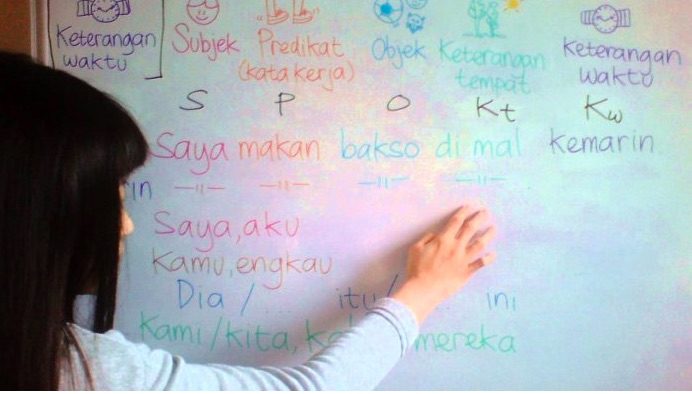 Keterangan waktu Subjek Predikat (kata kerja) Objek Keterangan tempat Keterangan waktu
S P O Kt Kw
Saya makan bakso di mal kemarin
in —ıı— —ıı— —ıı— —ıı—
Saya, aku
Kamu, engkau
Dia / ... itu / ... ini
Kami/kita, mereka